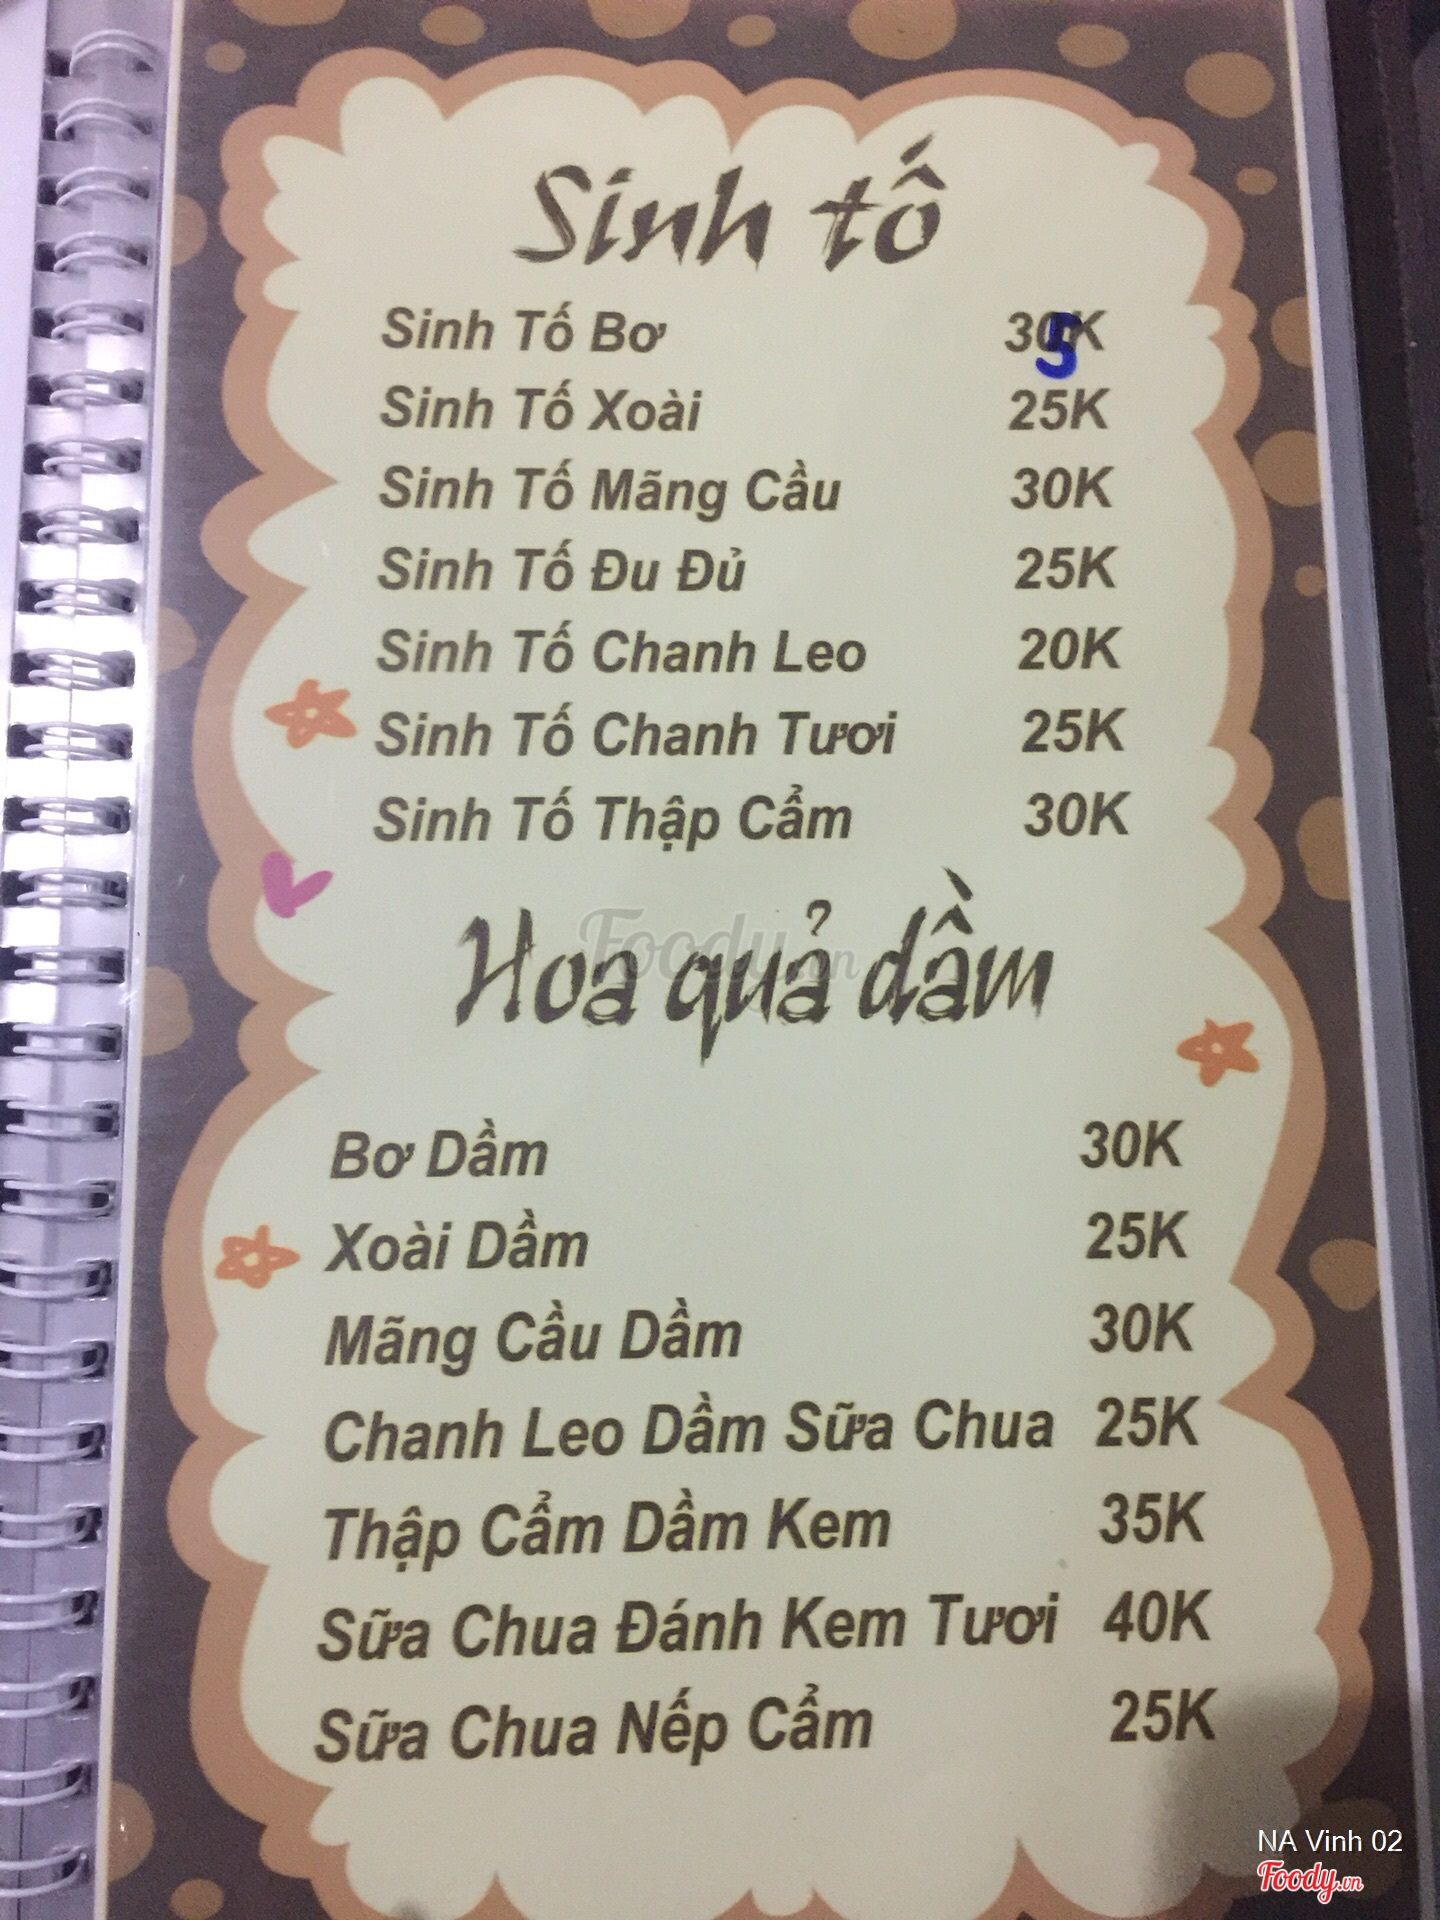 Sinh tố
Sinh Tố Bơ 30K 5
Sinh Tố Xoài 25K
Sinh Tố Mãng Cầu 30K
Sinh Tố Đu Đủ 25K
Sinh Tố Chanh Leo 20K
Sinh Tố Chanh Tươi 25K
Sinh Tố Thập Cẩm 30K
Foody.vn
Hoa quả dầm
Bơ Dầm 30K
Xoài Dầm 25K
Mãng Cầu Dầm 30K
Chanh Leo Dầm Sữa Chua 25K
Thập Cẩm Dầm Kem 35K
Sữa Chua Đánh Kem Tươi 40K
Sữa Chua Nếp Cẩm 25K
NA Vinh 02
Foody.vn